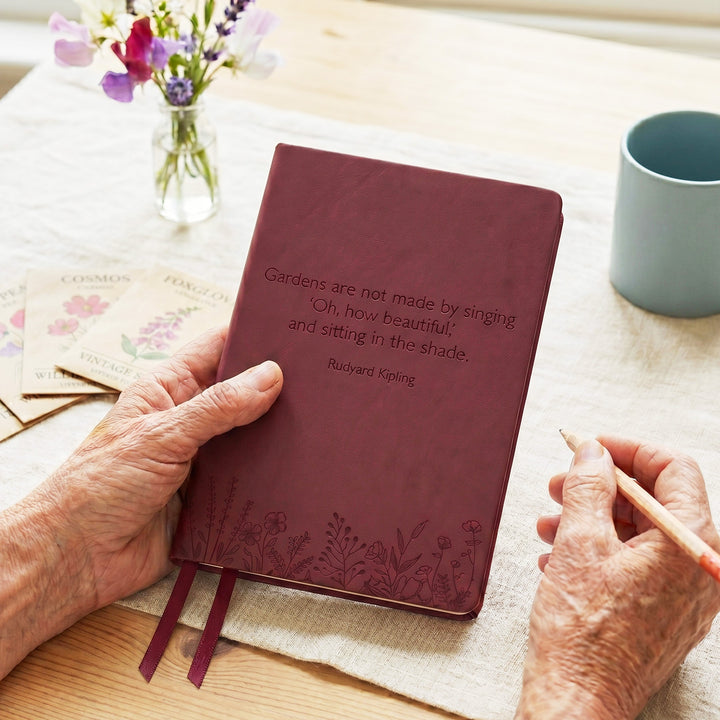 Gardens are not made by singing
‘Oh, how beautiful,’
and sitting in the shade.
Rudyard Kipling
COSMOS
FOXGLOVE
VINTAGE